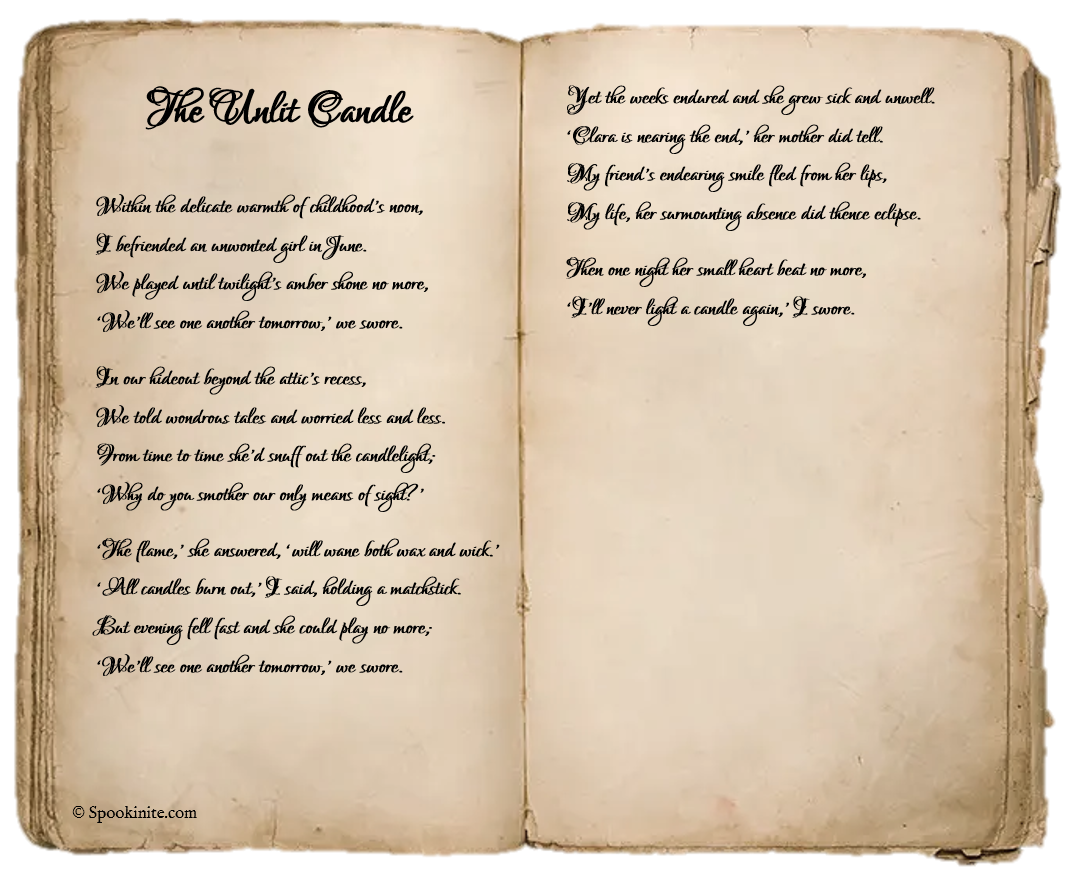 The Unlit Candle
Within the delicate warmth of childhood's noon,
I befriended an unwonted girl in June.
We played until twilight's amber shone no more,
'We'll see one another tomorrow,' we swore.
In our hideout beyond the attic's recess,
We told wondrous tales and worried less and less.
From time to time she'd snuff out the candlelight;
'Why do you smother our only means of sight?'
'The flame,' she answered, 'will wane both wax and wick.'
'All candles burn out,' I said, holding a matchstick.
But evening fell fast and she could play no more;
'We'll see one another tomorrow,' we swore.
© Spookinite.com
Yet the weeks endured and she grew sick and unwell.
'Clara is nearing the end,' her mother did tell.
My friend's endearing smile fled from her lips,
My life, her surmounting absence did thence eclipse.
Then one night her small heart beat no more,
'I'll never light a candle again,' I swore.